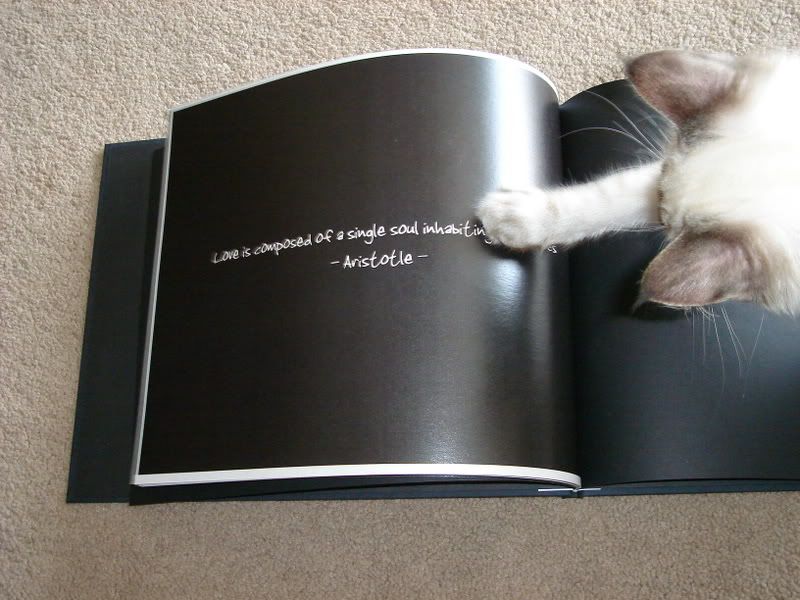 Love is composed of a single soul inhabiting
- Aristotle -